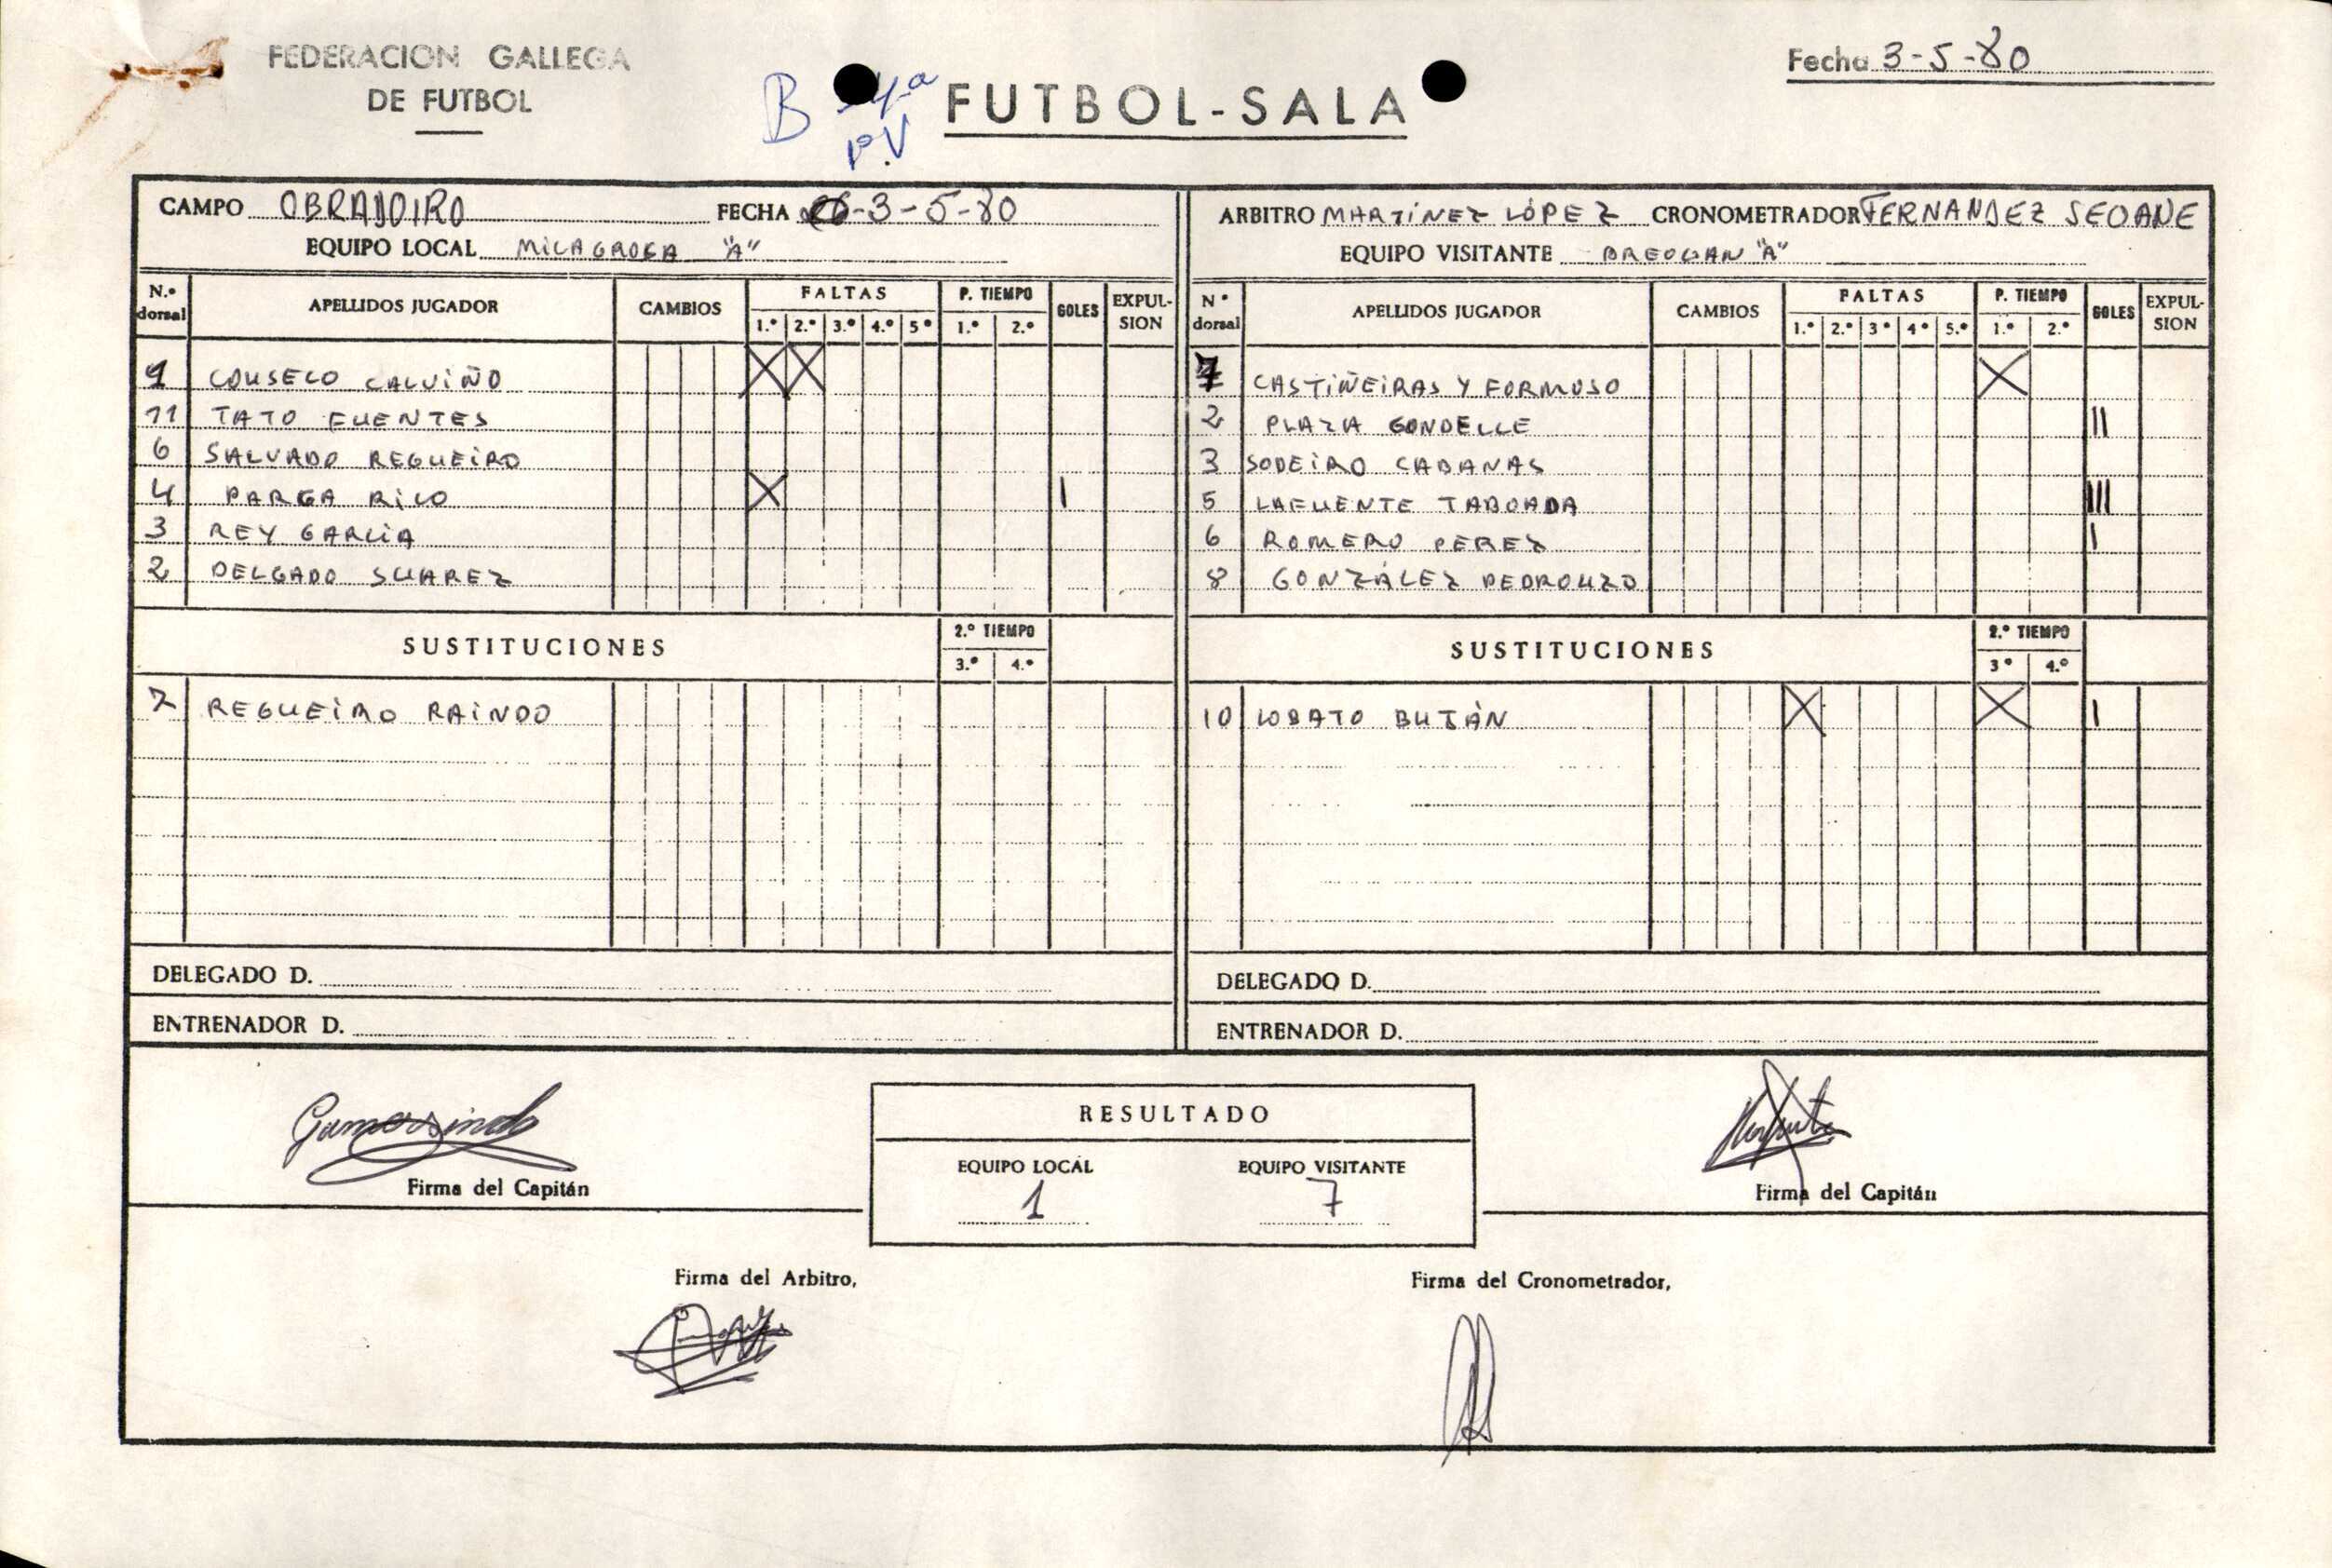 FEDERACION GALLEGA
DE FUTBOL
B 4ª
P.V
FUTBOL-SALA
Fecha 3-5-80
CAMPO OBRADOIRO FECHA 3-5-80
EQUIPO LOCAL MILAGROSA "A"
ARBITRO MARTÍNEZ LÓPEZ CRONOMETRADOR FERNANDEZ SEOANE
EQUIPO VISITANTE BREOGAN "A"
N.º dorsal APELLIDOS JUGADOR CAMBIOS FALTAS 1.º 2.º 3.º 4.º 5º P. TIEMPO 1.º 2.º GOLES EXPUL-SION
1 COUSELO CALVIÑO X X
11 TATO FUENTES
6 SALVADO REGUEIRO
4 PARGA RICO X I
3 REY GARCIA
2 DELGADO SUAREZ
SUSTITUCIONES 2.º TIEMPO 3.º 4.º
7 REGUEIRO RAINDO
DELEGADO D.
ENTRENADOR D.
Nº dorsal APELLIDOS JUGADOR CAMBIOS FALTAS 1.º 2.º 3º 4º 5.º P. TIEMPO 1.º 2.º GOLES EXPUL-SION
CASTIÑEIRAS Y FORMOSO X
2 PLAZA GONDELLE II
3 SODEIRO CABANAS
5 LAFUENTE TABOADA III
6 ROMERO PEREZ I
8 GONZÁLEZ PEDROUZO
SUSTITUCIONES 2.º TIEMPO 3º 4.º
10 LOBATO BUJÁN X X I
DELEGADO D.
ENTRENADOR D.
Firma del Capitán
RESULTADO
EQUIPO LOCAL EQUIPO VISITANTE
1 7
Firma del Capitán
Firma del Arbitro,
Firma del Cronometrador,